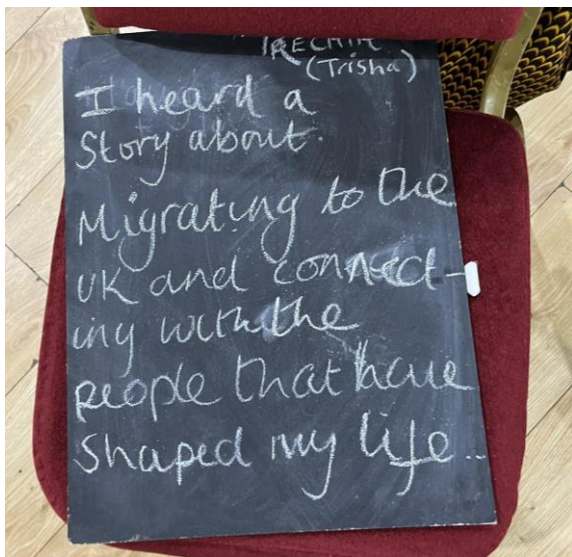 (Trisha)
I heard a
Story about.
Migrating to the
UK and connect-
ing with the
people that have
shaped my life..